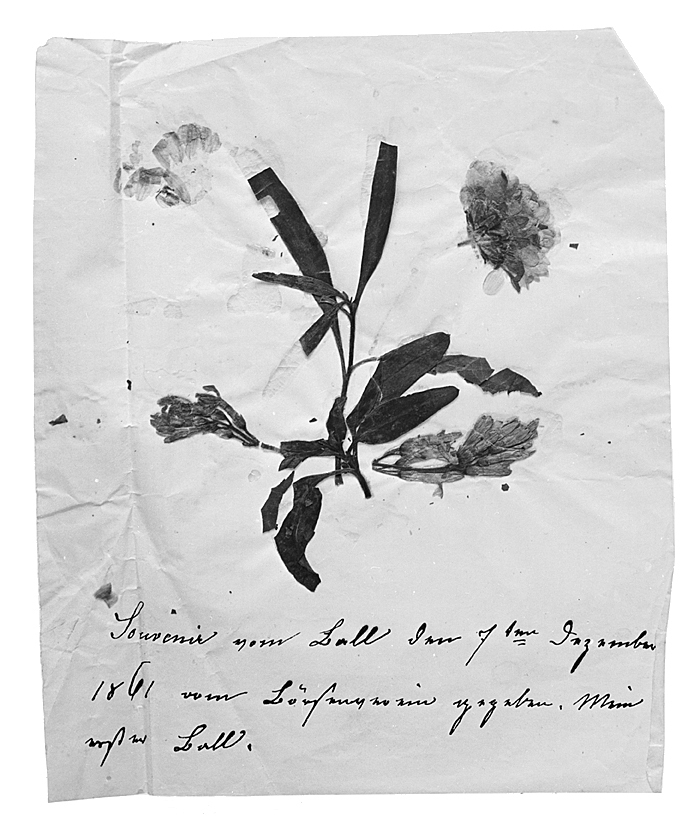 Souvenir vom Ball den 7ten Dezember
1861 vom Börsenverein gegeben. Mein
erster Ball.